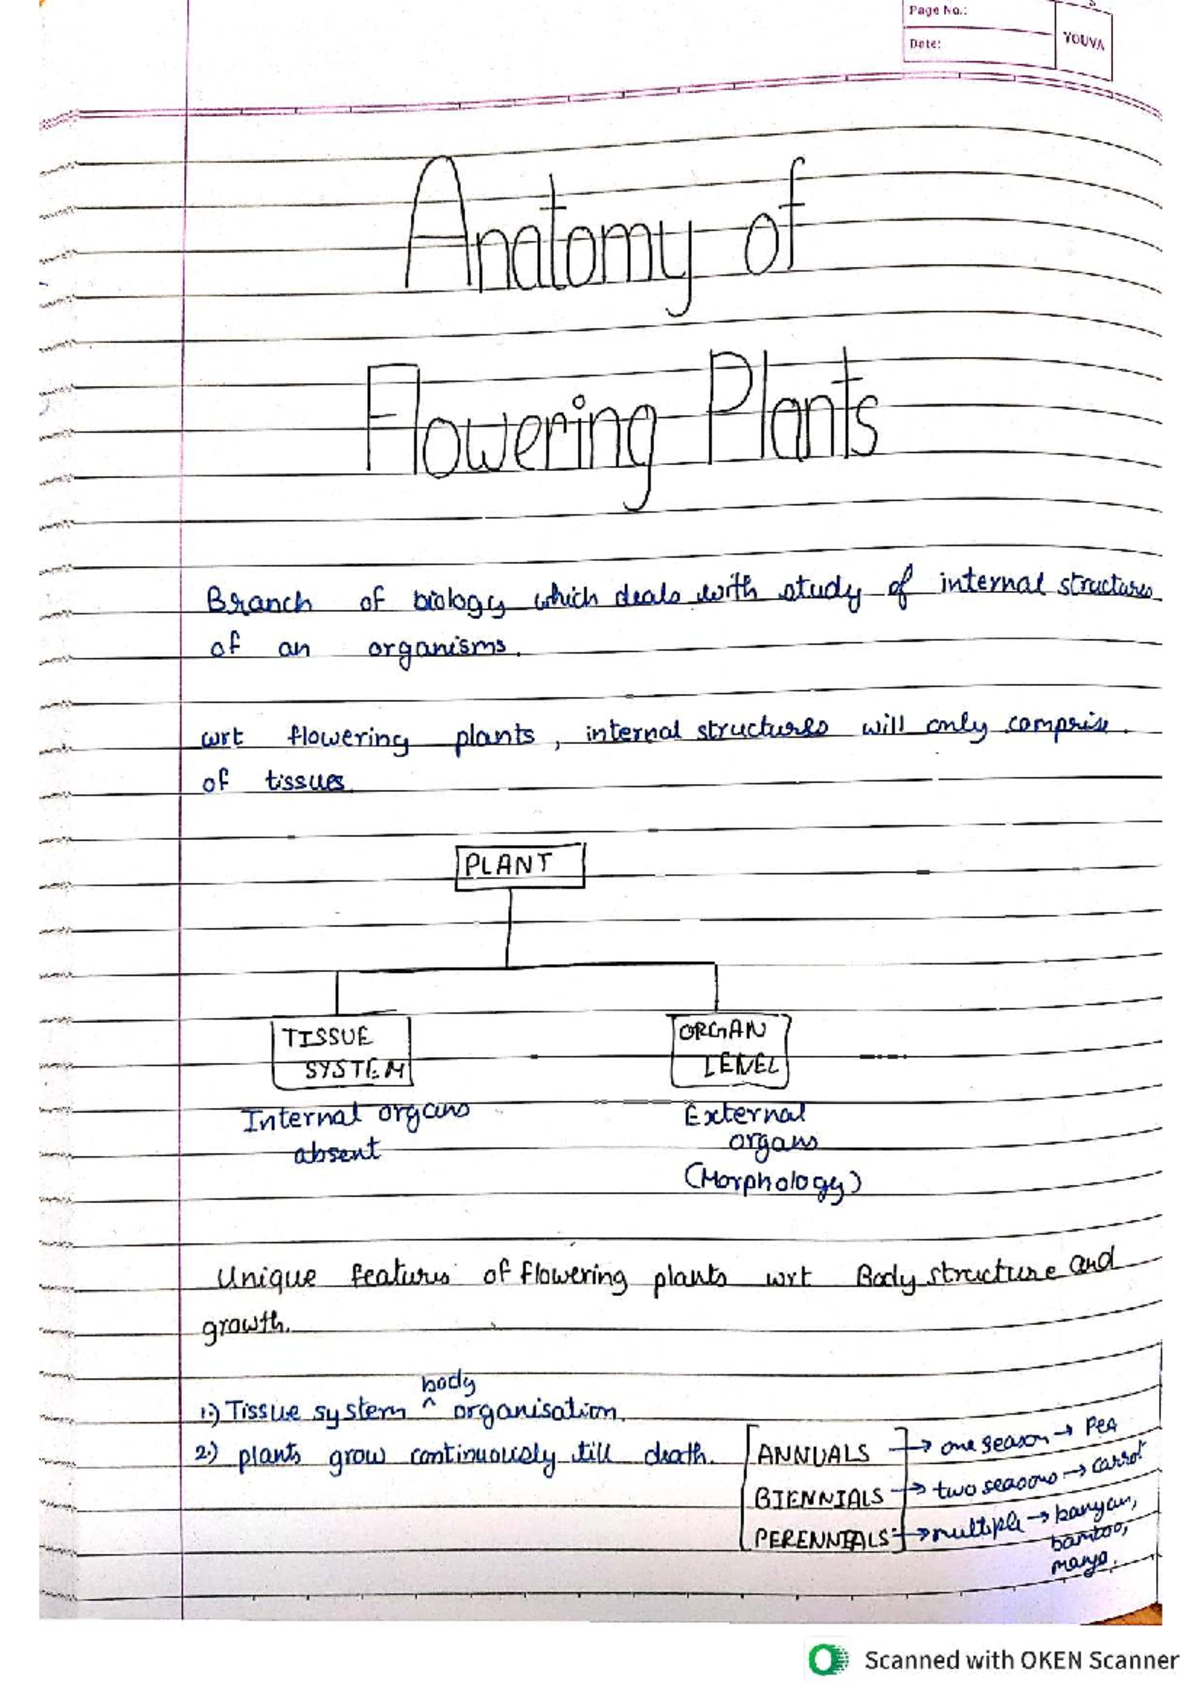 Page No.:
Date:
YOUVA
Anatomy of
Flowering Plants
Branch of biology which deals with study of internal structures
of an organisms.
wrt flowering plants, internal structures will only comprise
of tissues
PLANT
TISSUE
SYSTEM
ORGAN
LEVEL
Internal organs
absent
External
organs
(Morphology)
Unique features of flowering plants wrt Body structure and
growth.
body
1.) Tissue system ^ organisation.
2) plants grow continuously till death.
ANNUALS → one season → Pea
BIENNIALS → two seasons → carrot
PERENNIALS → multiple → banyan,
bamboo,
mango.
Scanned with OKEN Scanner